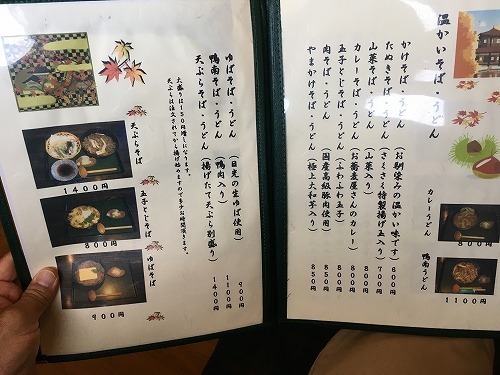 温かいそば・うどん
かけそば・うどん（お馴染みの温かい味です）６００円
たぬきそば・うどん（さくさく特製揚げ玉入り）７００円
山菜そば・うどん（山菜入り）８００円
カレーそば・うどん（お蕎麦屋さんのカレー）８００円
玉子とじそば・うどん（ふわふわ玉子）８００円
肉そば・うどん（国産高級豚肉使用）８５０円
やまかけそば・うどん（極上大和芋入り）８５０円
カレーうどん
８００円
鴨南うどん
１１００円
ゆばそば・うどん（日光の生ゆば使用）９００円
鴨南そば・うどん（鴨肉入り）１１００円
天ぷらそば・うどん（揚げたて天ぷら別盛り）１４００円
大盛りは１５０円増しになります。
天ぷらは注文されてから揚げ始めますので多少お時間頂きます。
天ぷらそば
１４００円
玉子とじそば
８００円
ゆばそば
９００円